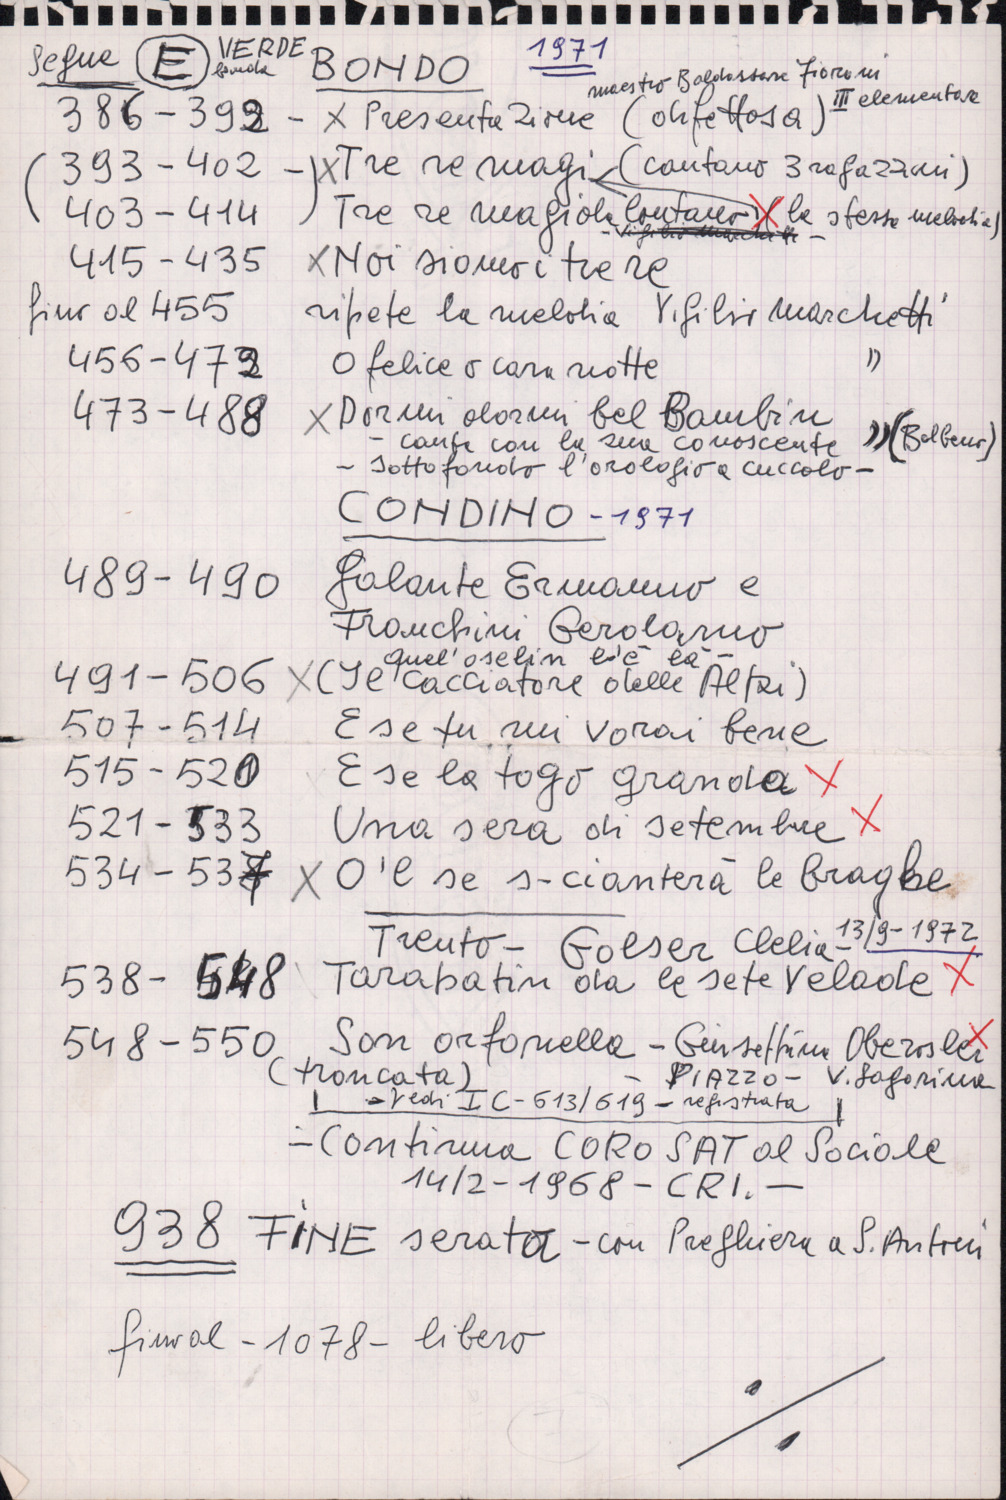 Segue E VERDE banda BONDO 1971
maestro Baldassare Fioroni
386-392 - X Presentazione (difettosa) III elementare
(393-402 -) X Tre re magi (cantano 3 ragazzini)
403-414 Tre re magi da lontano X la stessa melodia)
- Vigilio Marchetti -
415-435 X Noi siamo i tre re
fino al 455 ripete la melodia Vigilio Marchetti
456-472 O felice o cara notte "
473-488 X Dormi dormi bel Bambin " (Bolbeno)
- canta con la sua conoscente
- sottofondo l'orologio a cuccolo -
CONDINO - 1971
489-490 Galante Ermanno e
Franchini Gerolamo
quel'oselin l'è là -
491-506 X (Il cacciatore delle Alpi)
507-514 E se tu mi vorai bene
515-520 E se la togo granda X
521-533 Una sera di setembre X
534-537 X O'l se s-cianterà le braghe
Trento - Golser Clelia - 13/9-1972
538-548 Tarabatin da le sete velade X
548-550 Son orfanella - Giuseppina Oberosler X
(troncata) - PIAZZO - V. Lagarina
→ vedi I C-613/619 - registrata
- Continua CORO SAT al Sociale
14/2-1968 - CRI. -
938 FINE serata - con Preghiera a S. Antoni
fino al - 1078 - libero